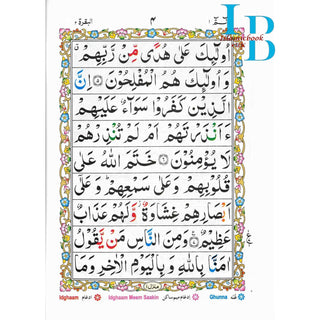 البقرة ٢ ٤ الٓمّٓ ١
IB
Islamicbook
أُولَٰٓئِكَ عَلَىٰ هُدًى مِّنْ رَّبِّهِمْ
وَأُولَٰٓئِكَ هُمُ الْمُفْلِحُونَ ۝٥ إِنَّ
الَّذِينَ كَفَرُوا سَوَآءٌ عَلَيْهِمْ
ءَاَنْذَرْتَهُمْ أَمْ لَمْ تُنْذِرْهُمْ
لَا يُؤْمِنُونَ ۝٦ خَتَمَ اللهُ عَلَىٰ
قُلُوبِهِمْ وَعَلَىٰ سَمْعِهِمْ ۖ وَعَلَىٰٓ
أَبْصَارِهِمْ غِشَاوَةٌ وَّلَهُمْ عَذَابٌ
عَظِيمٌ ۝٧ وَمِنَ النَّاسِ مَنْ يَّقُولُ
اٰمَنَّا بِاللهِ وَبِالْيَوْمِ الْاٰخِرِ وَمَا
Idghaam ادغام Idghaam Meem Saakin ادغام میم ساکن Ghunna غنہ